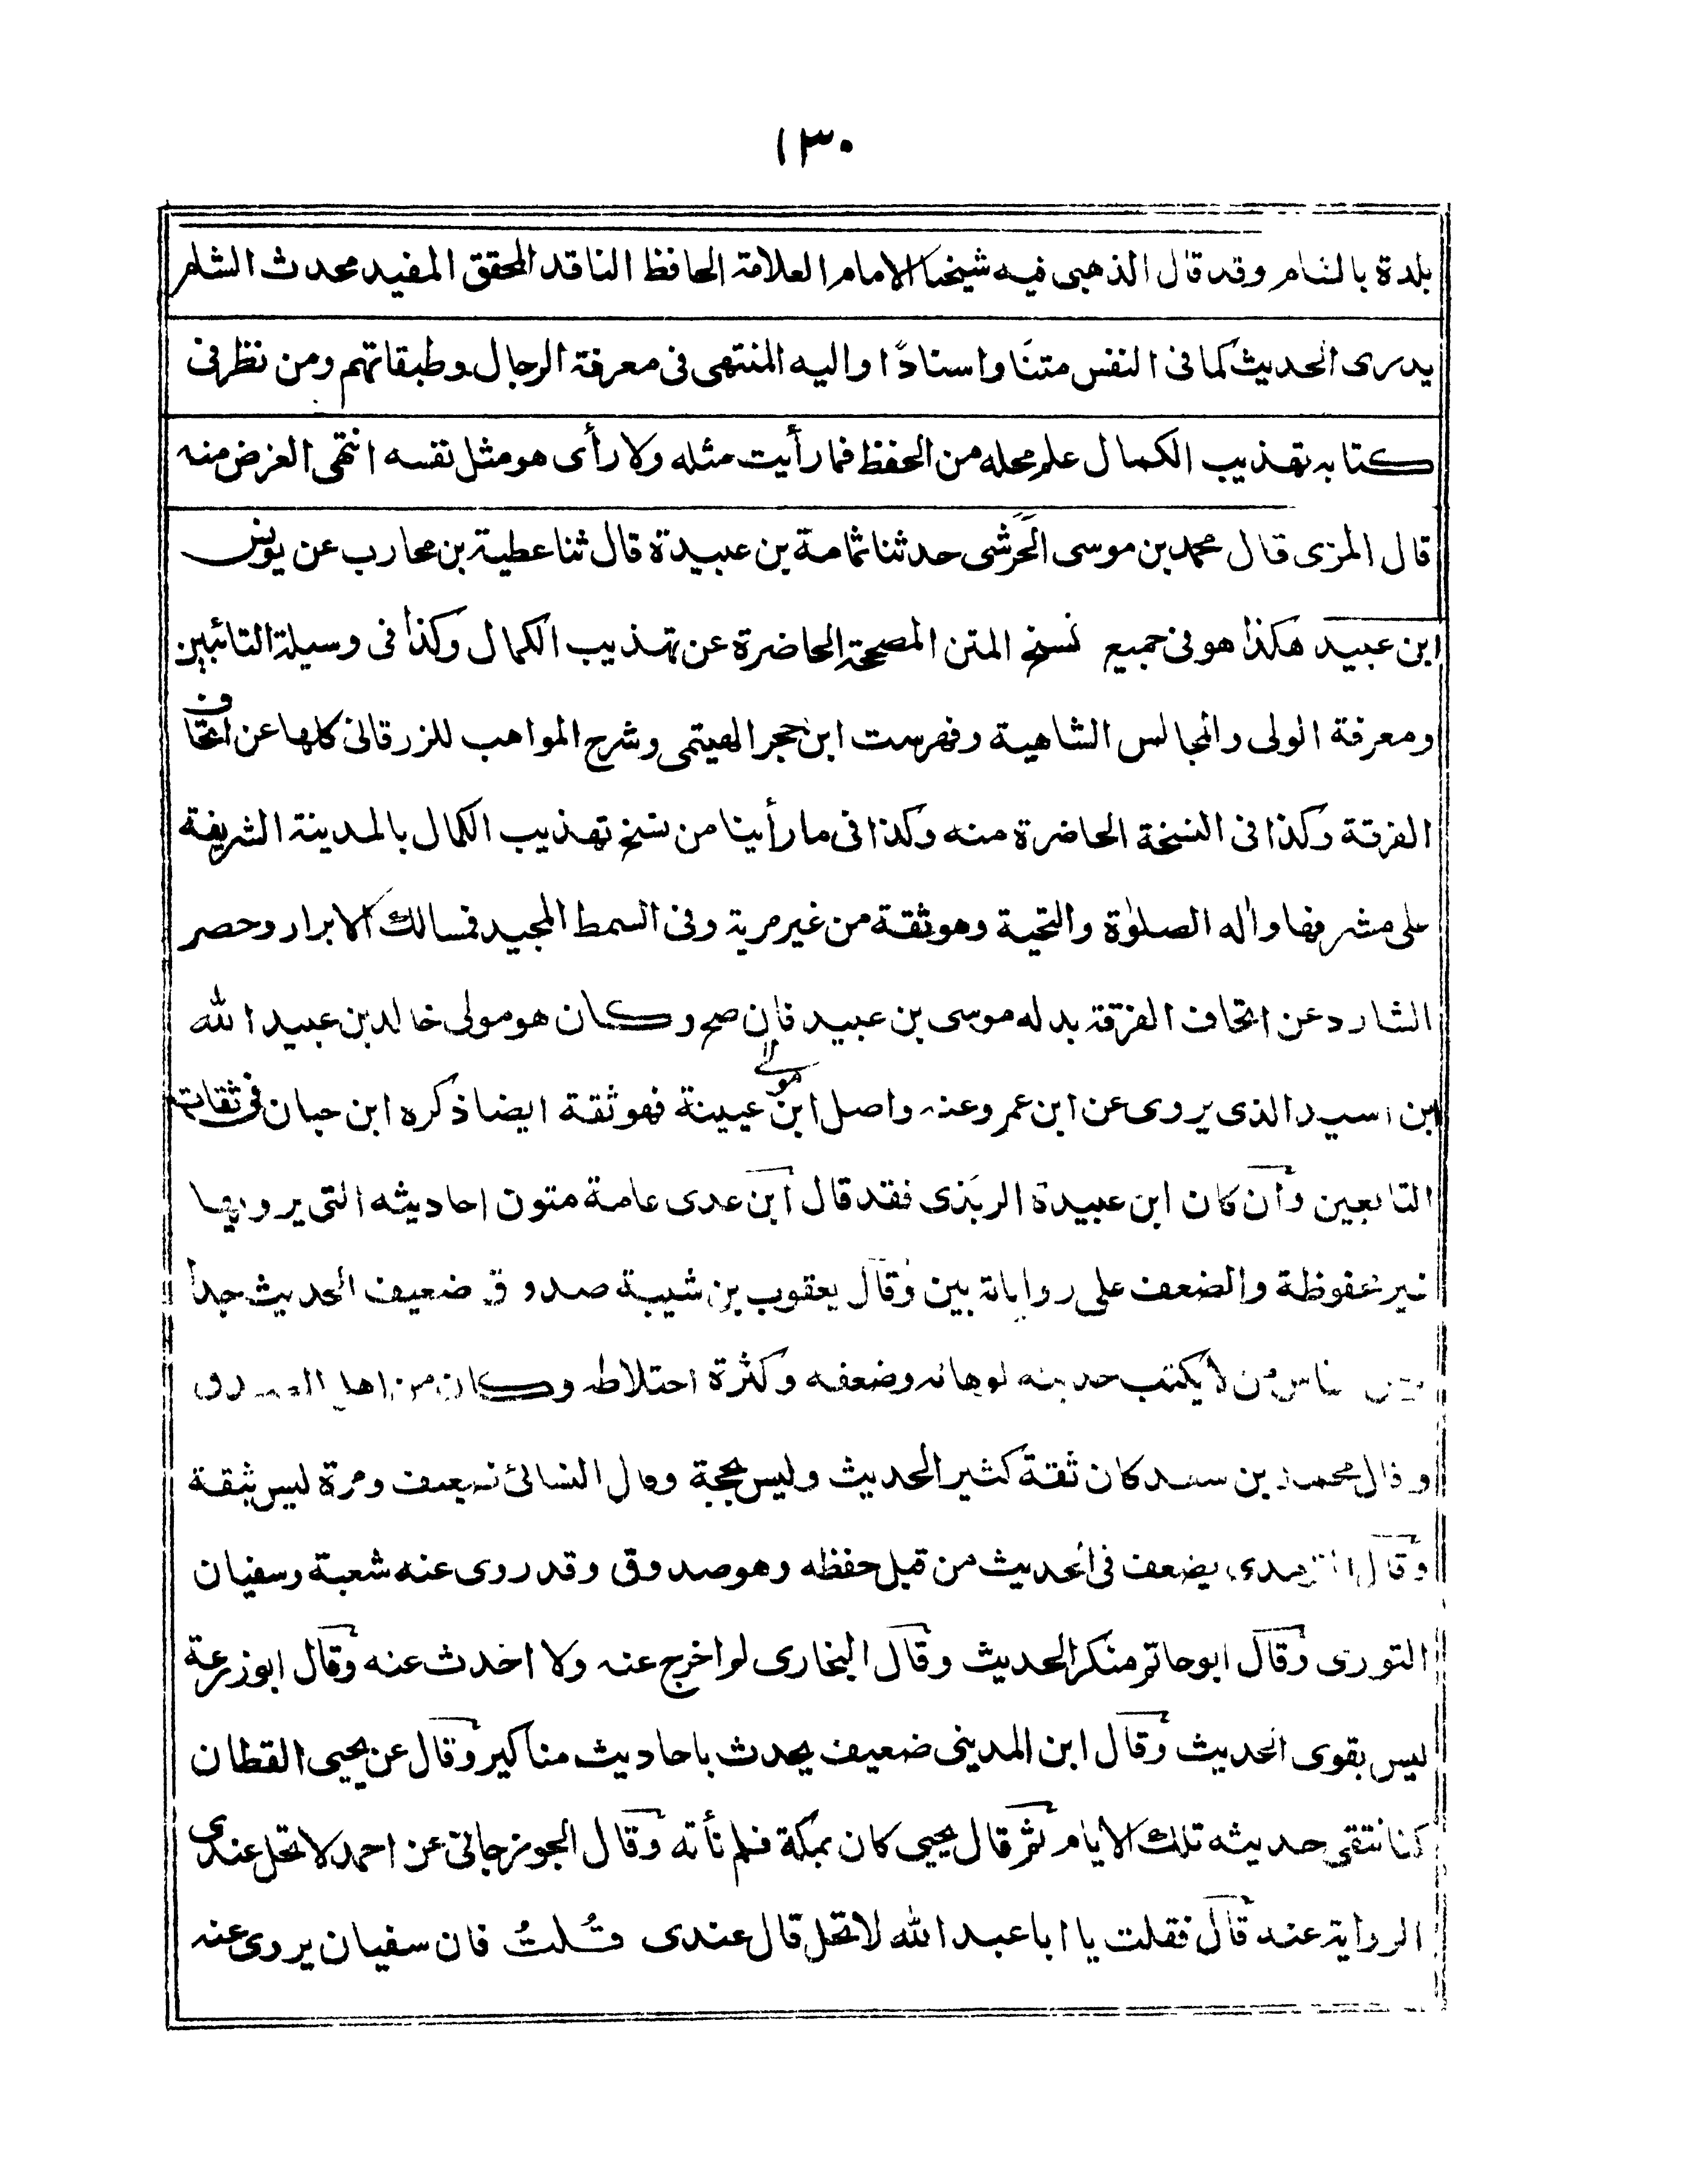 ١٣٠
بلدة بالشام وقد قال الذهبى فيه شيخنا الامام العلامة الحافظ الناقد المحقق المفيد محدث الشام
يدرى الحديث كما فى النفس متنًا واسنادًا واليه المنتهى فى معرفة الرجال وطبقاتهم ومن نظر فى
كتابه تهذيب الكمال علم محله من الحفظ فما رأيت مثله ولا رأى هو مثل نفسه انتهى الغرض منه
قال المزى قال محمد بن موسى الحَرَشى حدثنا ثمامة بن عبيدة قال ثنا عطية بن محارب عن يونس
ابن عبيد هكذا هو فى جميع نسخ المتن المصححة الحاضرة عن تهذيب الكمال وكذا فى وسيلة التائبين
ومعرفة الولى والمجالس الشاهية وفهرست ابن حجر الهيتمى وشرح المواهب للزرقانى كلها عن اتحاف
الفرقة وكذا فى النسخة الحاضرة منه وكذا فى ما رأينا من نسخ تهذيب الكمال بالمدينة الشريفة
على مشرفها واٰله الصلوٰة والتحية وهو ثقة من غير مرية وفى السمط المجيد فمسالك الابرار وحصر
الشارد عن اتحاف الفرقة بدله موسى بن عبيد فان صح وكان هو مولى خالد بن عبيد الله
ابن اسيد الذى يروى عن ابن عمر وعنه واصل مولى ابن عيينة فهو ثقة ايضا ذكره ابن حبان فى ثقات
التابعين وان كان ابن عبيدة الربَذى فقد قال ابن عدى عامة متون احاديثه التى يرويها
غير محفوظة والضعف على رواياته بين وقال يعقوب بن شيبة صدوق ضعيف الحديث جدا
ناس من لا يكتب حديثه لوهائه وضعفه وكثرة اختلاطه وكان من اهل الصدق
وقال محمد بن سعد كان ثقة كثير الحديث وليس بحجة وقال النسائ ضعيف ومرة ليس بثقة
وقال الترمدى يضعف فى الحديث من قبل حفظه وهو صدوق وقد روى عنه شعبة وسفيان
الثورى وقال ابو حاتم منكر الحديث وقال البخارى لم اخرج عنه ولا احدث عنه وقال ابو زرعة
ليس بقوى الحديث وقال ابن المدينى ضعيف يحدث باحاديث مناكير وقال عن يحيى القطان
كنا نتقى حديثه تلك الايام ثم قال يحيى كان بمكة فلم نأته وقال الجوزجانى عن احمد لا تحل عندى
الرواية عنه قال فقلت يا ابا عبد الله لا تحل قال عندى قُلتُ فان سفيان يروى عنه